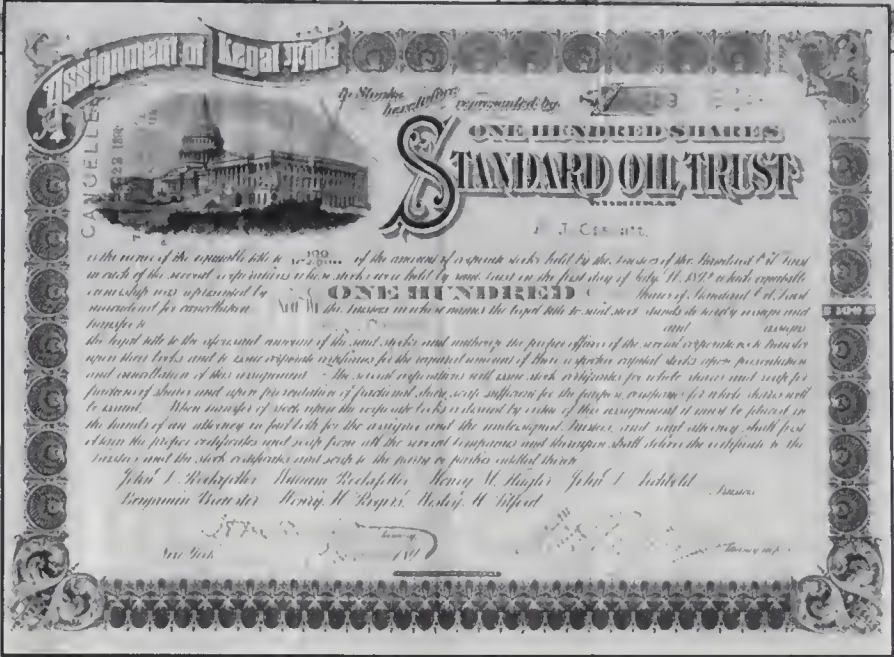 Assignment of Legal Title
to Stocks heretofore represented by
CANCELLED
ONE HUNDRED SHARES
STANDARD OIL TRUST
J. C
is the owner of the equitable title to 100 of the amount of corporate stocks held by the trustees of the Standard Oil Trust
in each of the several corporations whose stocks were held by said trust on the first day of July A.D. 1892 which equitable
ownership was represented by ONE HUNDRED Shares of Standard Oil Trust
surrendered for cancellation the trustees in whose names the legal title to said stock stands do hereby assign and
transfer to and assigns
the legal title to the aforesaid amount of the said stocks and authorize the proper officers of the several corporations to transfer
upon their books and to issue corporate certificates for the required amount of their respective capital stocks upon presentation
and cancellation of this assignment. The several corporations will issue stock certificates for whole shares and scrip for
fractions of shares and upon presentation of fractional share scrip sufficient for the purpose, certificates for whole shares will
be issued. When transfer of stock upon the corporate books is desired by virtue of this assignment it must be placed in
the hands of an attorney in fact both for the assignee and the undersigned trustees, and said attorney shall first
obtain the proper certificates and scrip from all the several companies and thereupon shall deliver the certificate to the
trustees and the stock certificates and scrip to the party or parties entitled thereto
John D. Rockefeller William Rockefeller Henry M. Flagler John D. Archbold
Trustees
Benjamin Brewster Henry H. Rogers Wesley H. Tilford
New York 189
$ 100 $